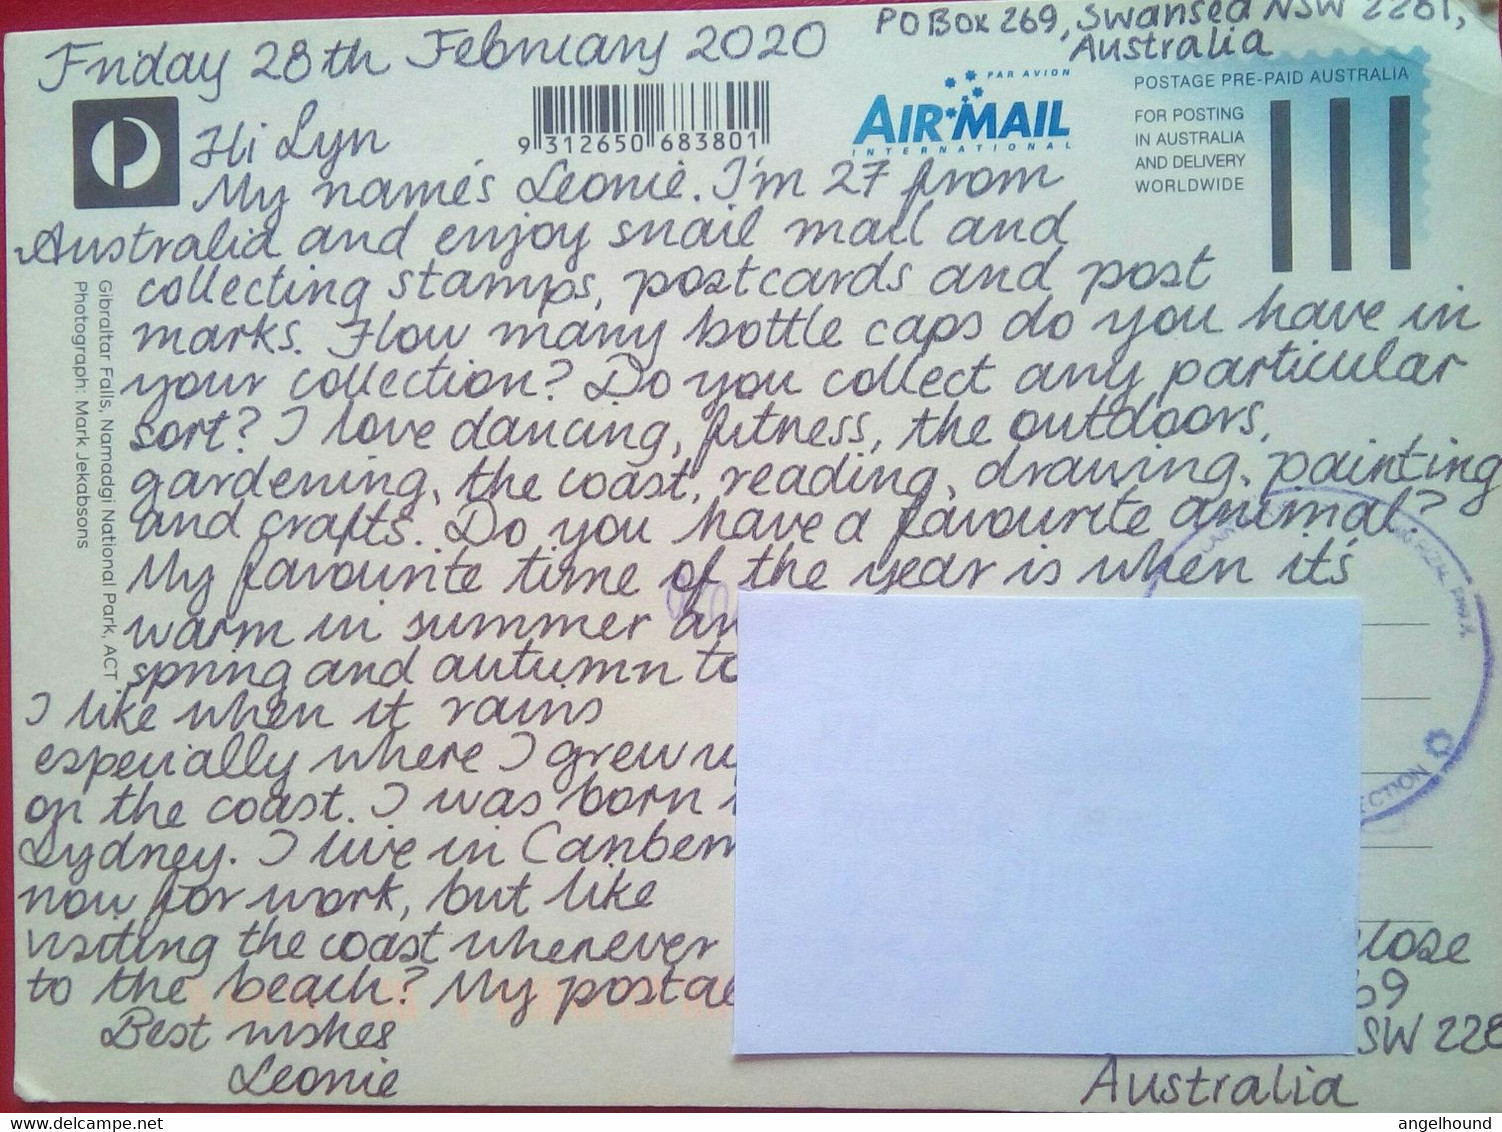 PO Box 269, Swansea NSW 2281,
Australia
Friday 28th February 2020
PAR AVION
AIR MAIL
INTERNATIONAL
POSTAGE PRE-PAID AUSTRALIA
FOR POSTING
IN AUSTRALIA
AND DELIVERY
WORLDWIDE
9 312650 683801
Hi Lyn
My name's Leonie. I'm 27 from
Australia and enjoy snail mail and
collecting stamps, postcards and post
marks. How many bottle caps do you have in
your collection? Do you collect any particular
sort? I love dancing, fitness, the outdoors,
gardening, the coast, reading, drawing, painting
and crafts. Do you have a favourite animal?
My favourite time of the year is when it's
warm in summer an
spring and autumn to
I like when it rains
especially where I grew u
on the coast. I was born
Sydney. I live in Canberr
now for work, but like
visiting the coast whenever
to the beach? My postal
Best wishes
Leonie
Gibraltar Falls, Namadgi National Park, ACT
Photograph: Mark Jekabsons
ECTION
lose
69
SW 228
Australia
angelhound
www.delcampe.net